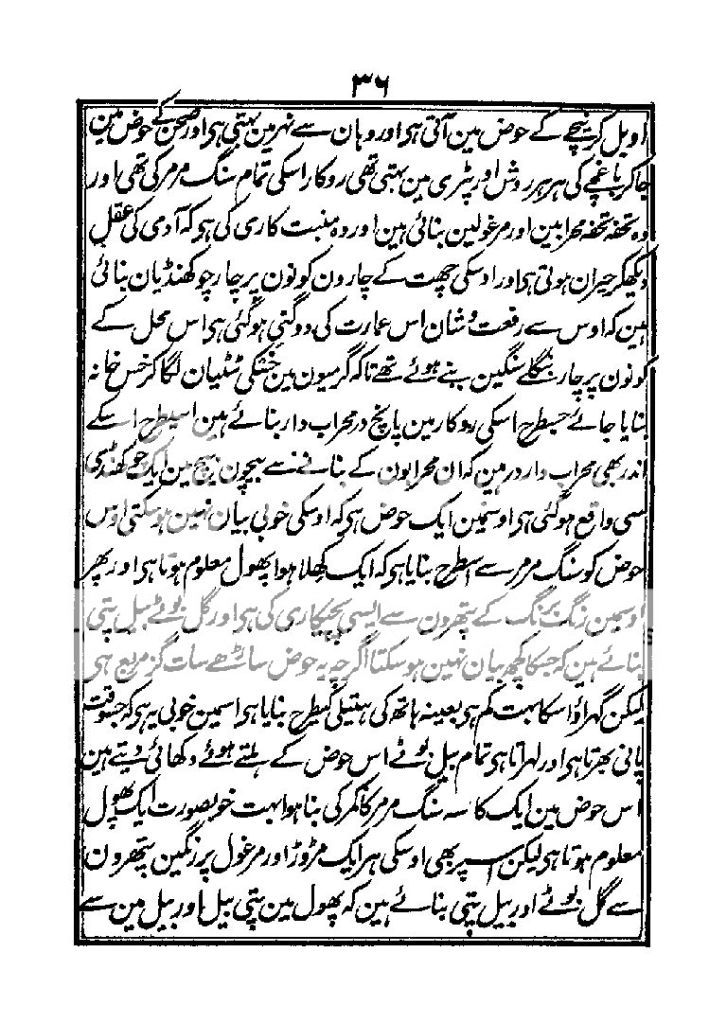 ۳۶
اوبل کر نیچے کے حوض مین آتی ہی اور وہان سے نہر مین بہتی ہی اور صحن کے حوض مین
جاکر باغچے کی ہر ہر روش اور پٹری مین بہتی تھی روکار اسکی تمام سنگ مرمر کی تھی اور
وہ تحفہ تحفہ محرابین اور مرغولین بنائی ہین اور وہ منبت کاری کی ہی کہ آدمی کی عقل
دیکھکر حیران ہوتی ہی اور اوسکی چھت کے چارون کونون پر چار چوکھنڈیان بنائی
ہین کہ اوس سے رفعت و شان اس عمارت کی دوگنی ہوگئی ہی اس محل کے
کونون پر چار بنگلے سنگین بنے ہوئے تھے تاکہ گرمیون مین خنکی ٹٹیان لگاکر خس خانہ
بنایا جائے جسطرح اسکی روکار مین پانچ در محراب دار بنائے ہین اسیطرح اسکے
اندر بھی محراب دار در ہین کہ ان محرابون کے بنانے سے بیچون بیچ مین ایک چوکھنڈی
سی واقع ہوگئی ہی اوسمین ایک حوض ہی کہ اوسکی خوبی بیان نہین ہوسکتی اوس
حوض کو سنگ مرمر سے اسطرح بنایا ہی کہ ایک کھلا ہوا پھول معلوم ہوتا ہی اور پھر
اوسمین رنگ برنگ کے پتھرون سے ایسی پچیکاری کی ہی اور گل بوٹے بیل پتی
بنائے ہین کہ جسکا کچھ بیان نہین ہوسکتا اگرچہ یہ حوض ساڑھے سات گز مربع ہی
لیکن گہراؤ اسکا بہت کم ہی بعینہ ہاتھ کی ہتیلی کیطرح بنایا ہی اسمین خوبی یہ ہی کہ جسوقت
پانی بھرتا ہی اور لہراتا ہی تمام بیل بوٹے اس حوض کے ہلتے ہوئے دکھائی دیتے ہین
اس حوض مین ایک کاسہ سنگ مرمر کا کمرکی بنا ہوا بہت خوبصورت ایک پھول
معلوم ہوتا ہی لیکن اسپر بھی اوسکی ہر ایک مڑوڑ اور مرغول پر رنگین پتھرون
سے گل بوٹے اور بیل پتی بنائے ہین کہ پھول مین پتی بیل اور بیل مین سے